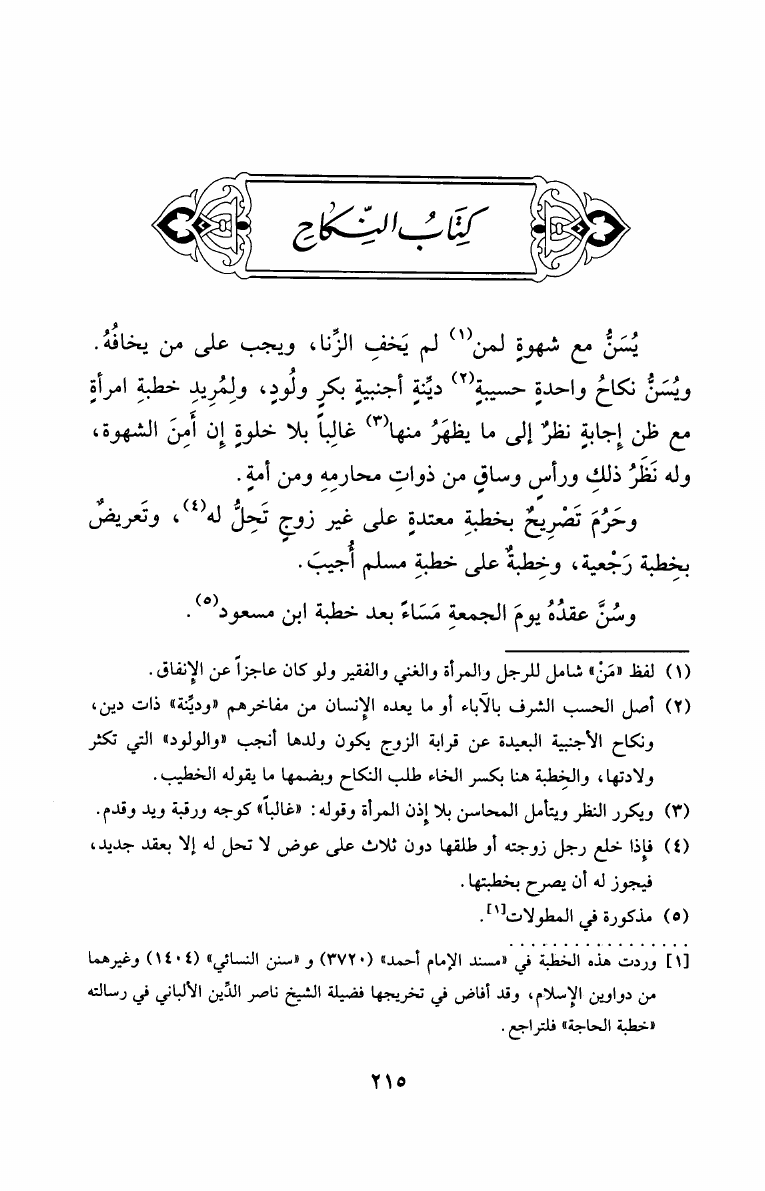 كِتَابُ النِّكَاحِ
يُسَنُّ مع شهوةٍ لمن(١) لم يَخفِ الزِّنا، ويجب على من يخافُهُ.
ويُسَنُّ نكاحُ واحدةٍ حسيبةٍ(٢) ديِّنةٍ أجنبيةٍ بكرٍ ولُودٍ، ولِمُرِيدِ خطبةِ امرأةٍ
مع ظن إجابةٍ نظرٌ إلى ما يظهَرُ منها(٣) غالِباً بلا خلوةٍ إن أمِنَ الشهوة،
وله نَظَرُ ذلك ورأسٍ وساقٍ من ذواتِ محارمِهِ ومن أمةٍ.
وحَرُمَ تَصْرِيحٌ بخطبةِ معتدةٍ على غير زوجٍ تَحِلُّ له(٤)، وتَعريضٌ
بخِطبة رَجْعية، وخِطبةٌ على خطبةِ مسلم أُجيبَ.
وسُنَّ عقدُهُ يومَ الجمعةِ مَسَاءً بعد خطبة ابن مسعود(٥).
(١) لفظ «مَنْ» شامل للرجل والمرأة والغني والفقير ولو كان عاجزاً عن الإنفاق.
(٢) أصل الحسب الشرف بالآباء أو ما يعده الإنسان من مفاخرهم «وديِّنة» ذات دين،
ونكاح الأجنبية البعيدة عن قرابة الزوج يكون ولدها أنجب «والولود» التي تكثر
ولادتها، والخِطبة هنا بكسر الخاء طلب النكاح وبضمها ما يقوله الخطيب.
(٣) ويكرر النظر ويتأمل المحاسن بلا إذن المرأة وقوله: «غالباً» كوجه ورقبة ويد وقدم.
(٤) فإذا خلع رجل زوجته أو طلقها دون ثلاث على عوض لا تحل له إلا بعقد جديد،
فيجوز له أن يصرح بخطبتها.
(٥) مذكورة في المطولات[١].
[١] وردت هذه الخطبة في «مسند الإمام أحمد» (٣٧٢٠) و «سنن النسائي» (١٤٠٤) وغيرهما
من دواوين الإسلام، وقد أفاض في تخريجها فضيلة الشيخ ناصر الدِّين الألباني في رسالته
«خطبة الحاجة» فلتراجع.
٢١٥